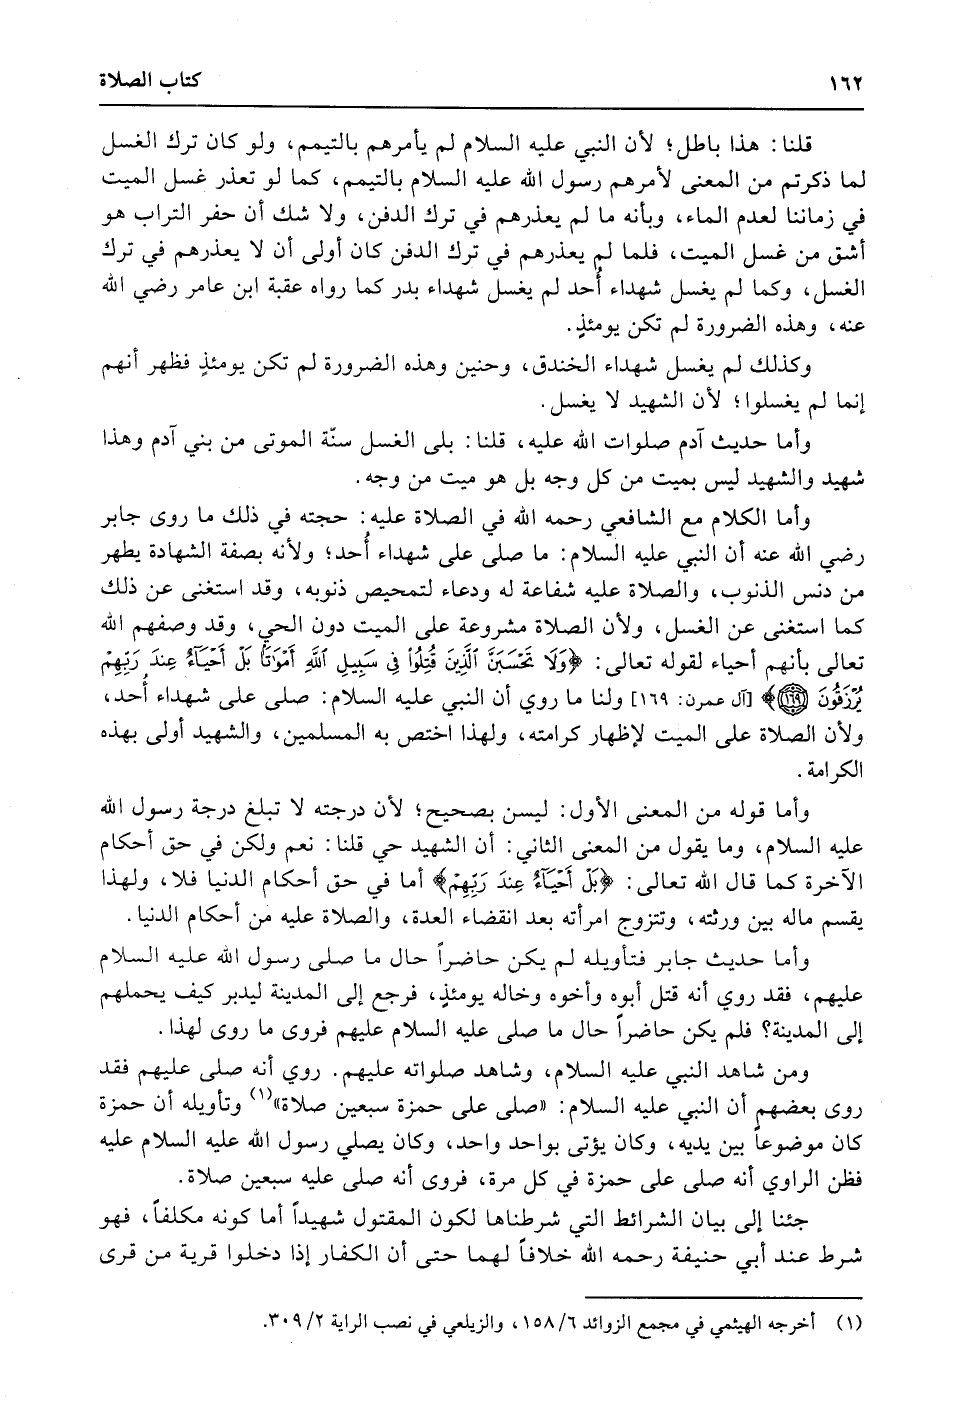 ١٦٢
كتاب الصلاة
قلنا: هذا باطل؛ لأن النبي عليه السلام لم يأمرهم بالتيمم، ولو كان ترك الغسل
لما ذكرتم من المعنى لأمرهم رسول الله عليه السلام بالتيمم، كما لو تعذر غسل الميت
في زماننا لعدم الماء، وبأنه ما لم يعذرهم في ترك الدفن، ولا شك أن حفر التراب هو
أشق من غسل الميت، فلما لم يعذرهم في ترك الدفن كان أولى أن لا يعذرهم في ترك
الغسل، وكما لم يغسل شهداء أُحد لم يغسل شهداء بدر كما رواه عقبة ابن عامر رضي الله
عنه، وهذه الضرورة لم تكن يومئذٍ.
وكذلك لم يغسل شهداء الخندق، وحنين وهذه الضرورة لم تكن يومئذٍ فظهر أنهم
إنما لم يغسلوا؛ لأن الشهيد لا يغسل.
وأما حديث آدم صلوات الله عليه، قلنا: بلى الغسل سنّة الموتى من بني آدم وهذا
شهيد والشهيد ليس بميت من كل وجه بل هو ميت من وجه.
وأما الكلام مع الشافعي رحمه الله في الصلاة عليه: حجته في ذلك ما روى جابر
رضي الله عنه أن النبي عليه السلام: ما صلى على شهداء أُحد؛ ولأنه بصفة الشهادة يطهر
من دنس الذنوب، والصلاة عليه شفاعة له ودعاء لتمحيص ذنوبه، وقد استغنى عن ذلك
كما استغنى عن الغسل، ولأن الصلاة مشروعة على الميت دون الحي، وقد وصفهم الله
تعالى بأنهم أحياء لقوله تعالى: ﴿وَلَا تَحْسَبَنَّ ٱلَّذِينَ قُتِلُوا۟ فِى سَبِيلِ ٱللَّهِ أَمْوَٰتًۢا بَلْ أَحْيَآءٌ عِندَ رَبِّهِمْ
يُرْزَقُونَ ١٦٩﴾ [آل عمرن: ١٦٩] ولنا ما روي أن النبي عليه السلام: صلى على شهداء أُحد،
ولأن الصلاة على الميت لإظهار كرامته، ولهذا اختص به المسلمين، والشهيد أولى بهذه
الكرامة.
وأما قوله من المعنى الأول: ليسن بصحيح؛ لأن درجته لا تبلغ درجة رسول الله
عليه السلام، وما يقول من المعنى الثاني: أن الشهيد حي قلنا: نعم ولكن في حق أحكام
الآخرة كما قال الله تعالى: ﴿بَلْ أَحْيَآءٌ عِندَ رَبِّهِمْ﴾ أما في حق أحكام الدنيا فلا، ولهذا
يقسم ماله بين ورثته، وتتزوج امرأته بعد انقضاء العدة، والصلاة عليه من أحكام الدنيا.
وأما حديث جابر فتأويله لم يكن حاضراً حال ما صلى رسول الله عليه السلام
عليهم، فقد روي أنه قتل أبوه وأخوه وخاله يومئذٍ، فرجع إلى المدينة ليدبر كيف يحملهم
إلى المدينة؟ فلم يكن حاضراً حال ما صلى عليه السلام عليهم فروى ما روى لهذا.
ومن شاهد النبي عليه السلام، وشاهد صلواته عليهم. روي أنه صلى عليهم فقد
روى بعضهم أن النبي عليه السلام: «صلى على حمزة سبعين صلاة»(١) وتأويله أن حمزة
كان موضوعاً بين يديه، وكان يؤتى بواحد واحد، وكان يصلي رسول الله عليه السلام عليه
فظن الراوي أنه صلى على حمزة في كل مرة، فروى أنه صلى عليه سبعين صلاة.
جئنا إلى بيان الشرائط التي شرطناها لكون المقتول شهيداً أما كونه مكلفاً، فهو
شرط عند أبي حنيفة رحمه الله خلافاً لهما حتى أن الكفار إذا دخلوا قرية من قرى
(١) أخرجه الهيثمي في مجمع الزوائد ١٥٨/٦، والزيلعي في نصب الراية ٣٠٩/٢.